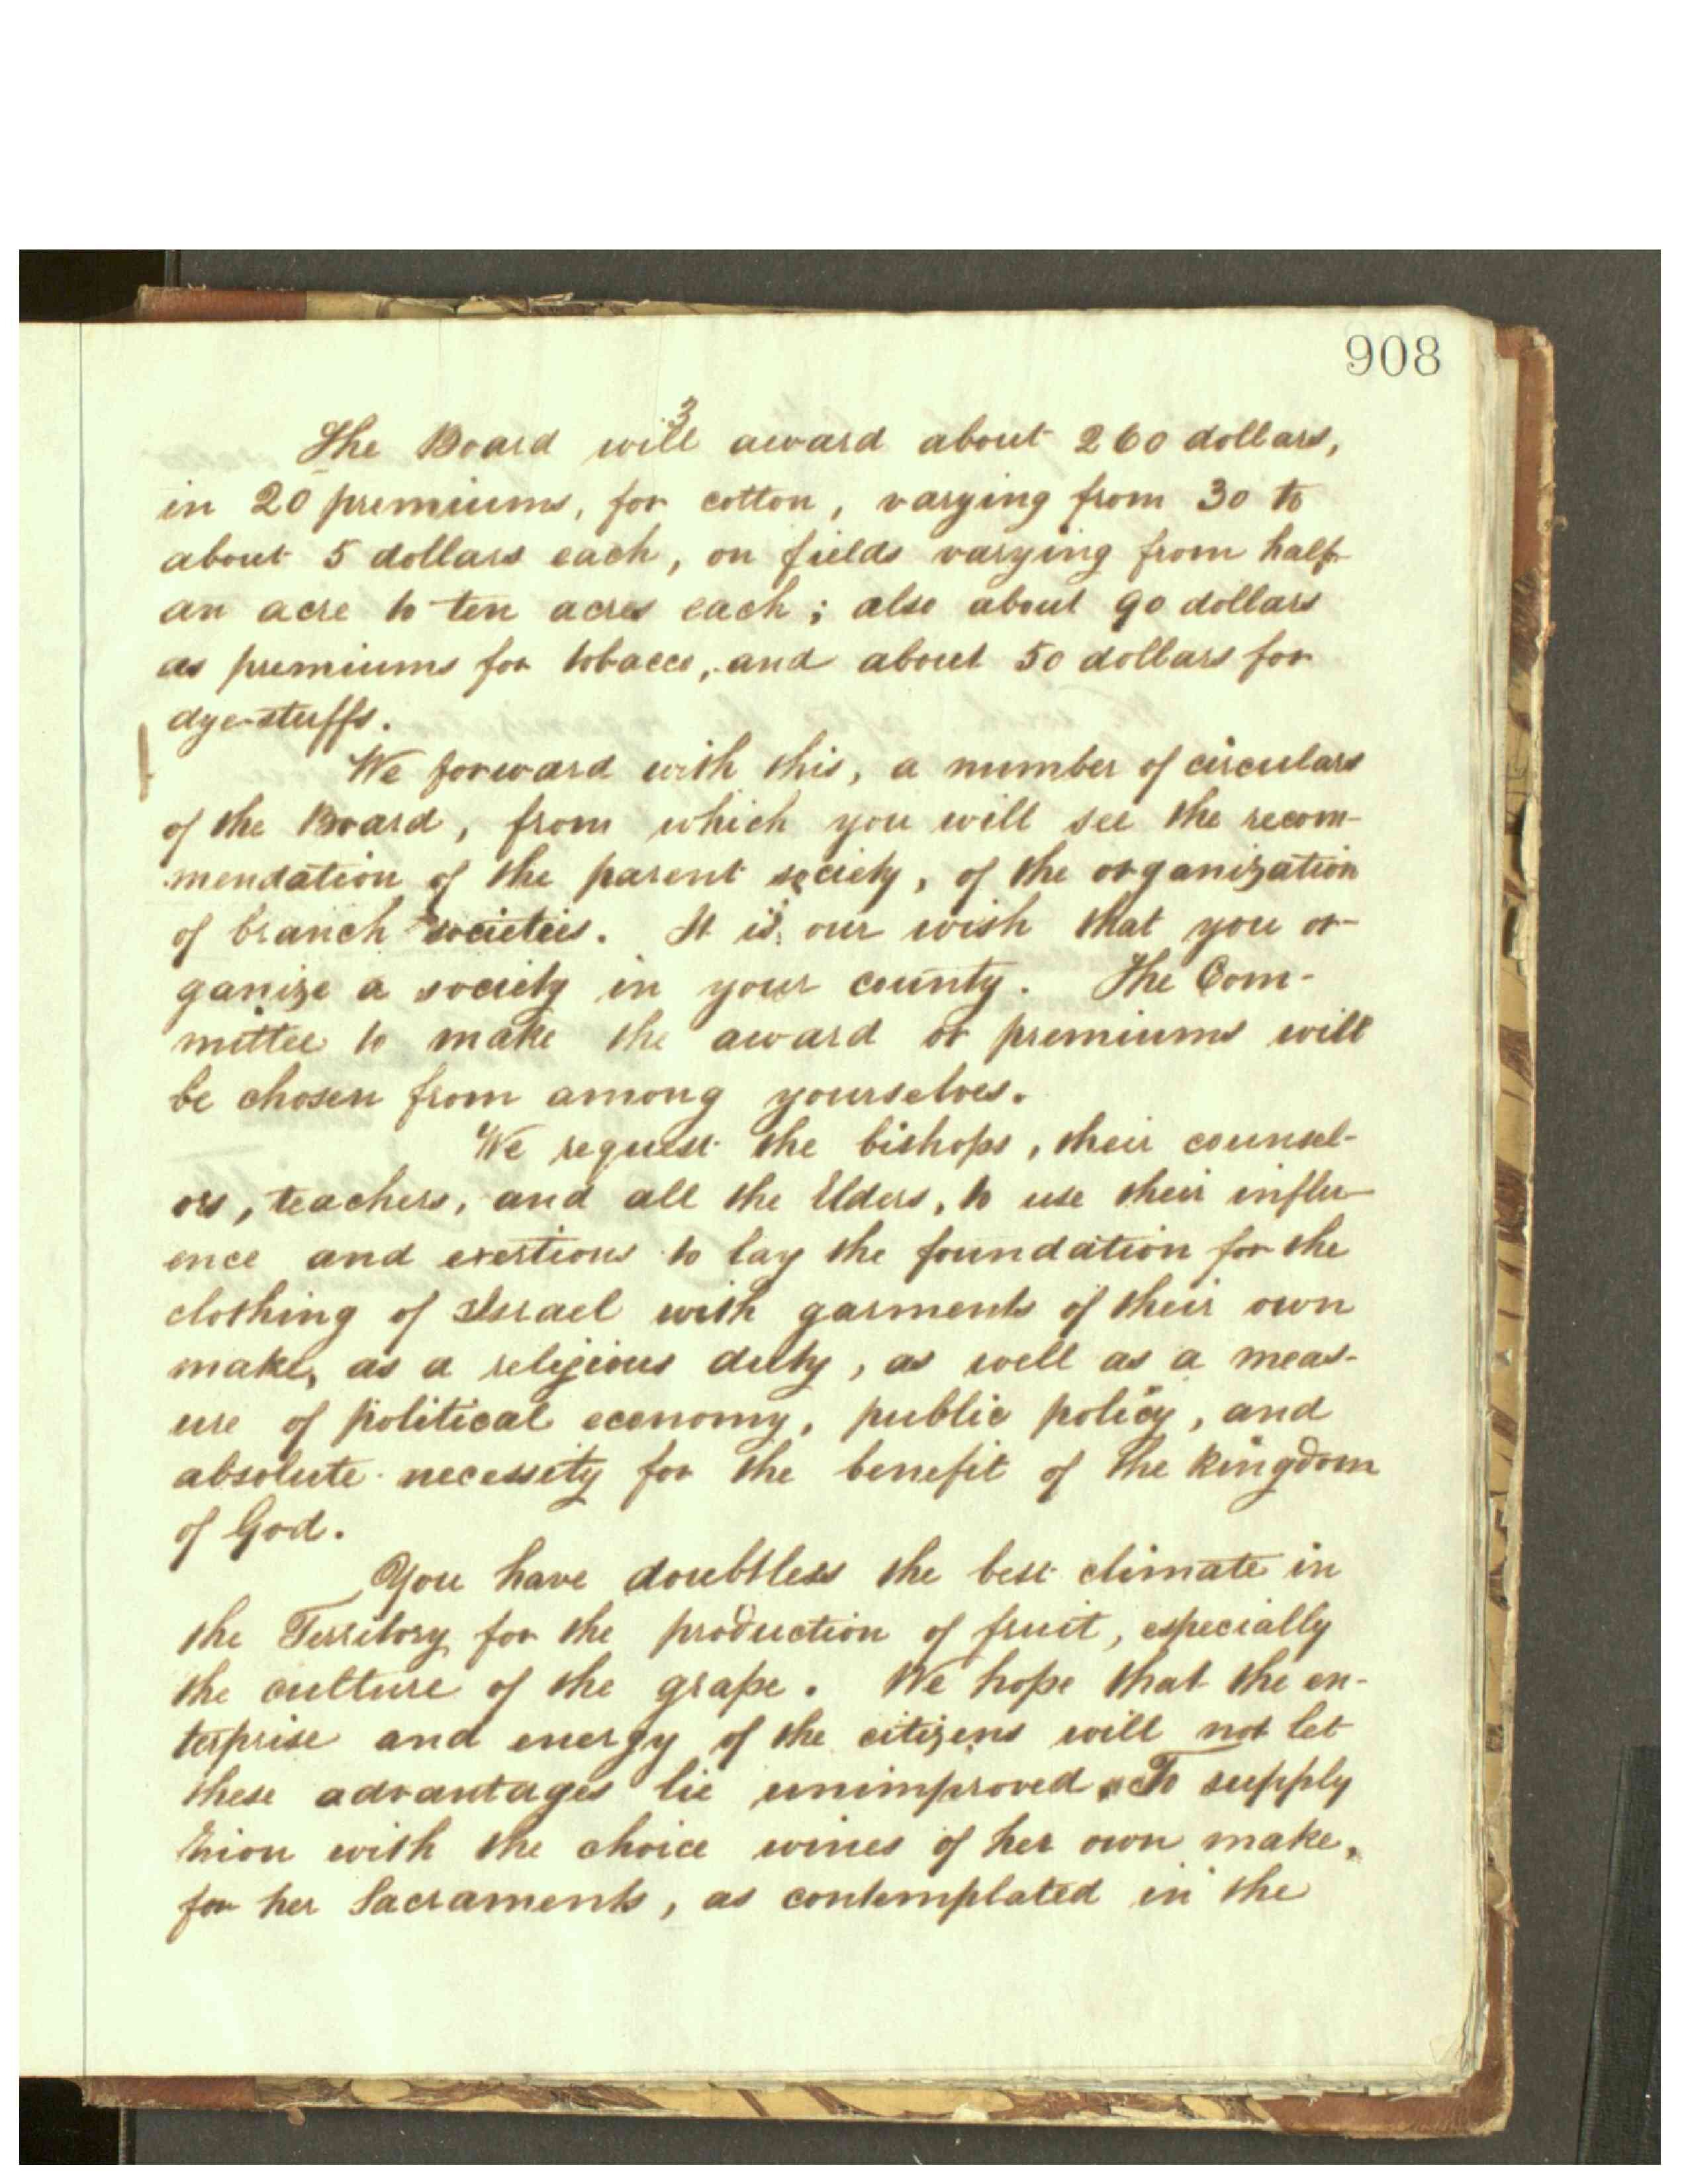 908
3
The Board will award about 260 dollars,
in 20 premiums, for cotton, varying from 30 to
about 5 dollars each, on fields varying from half
an acre to ten acres each; also about 90 dollars
as premiums for tobacco, and about 50 dollars for
dye-stuffs.
We forward with this, a number of circulars
of the Board, from which you will see the recom-
mendation of the parent society, of the organization
of branch societies. It is our wish that you or-
ganize a society in your county. The Com-
mittee to make the award or premiums will
be chosen from among yourselves.
We request the bishops, their counsel-
ors, teachers, and all the Elders, to use their influ-
ence and exertions to lay the foundation for the
clothing of Israel with garments of their own
make, as a religious duty, as well as a meas-
ure of political economy, public policy, and
absolute necessity for the benefit of the Kingdom
of God.
You have doubtless the best climate in
the Territory for the production of fruit, especially
the culture of the grape. We hope that the en-
terprise and energy of the citizens will not let
these advantages lie unimproved. To supply
Zion with the choice wines of her own make,
for her Sacraments, as contemplated in the